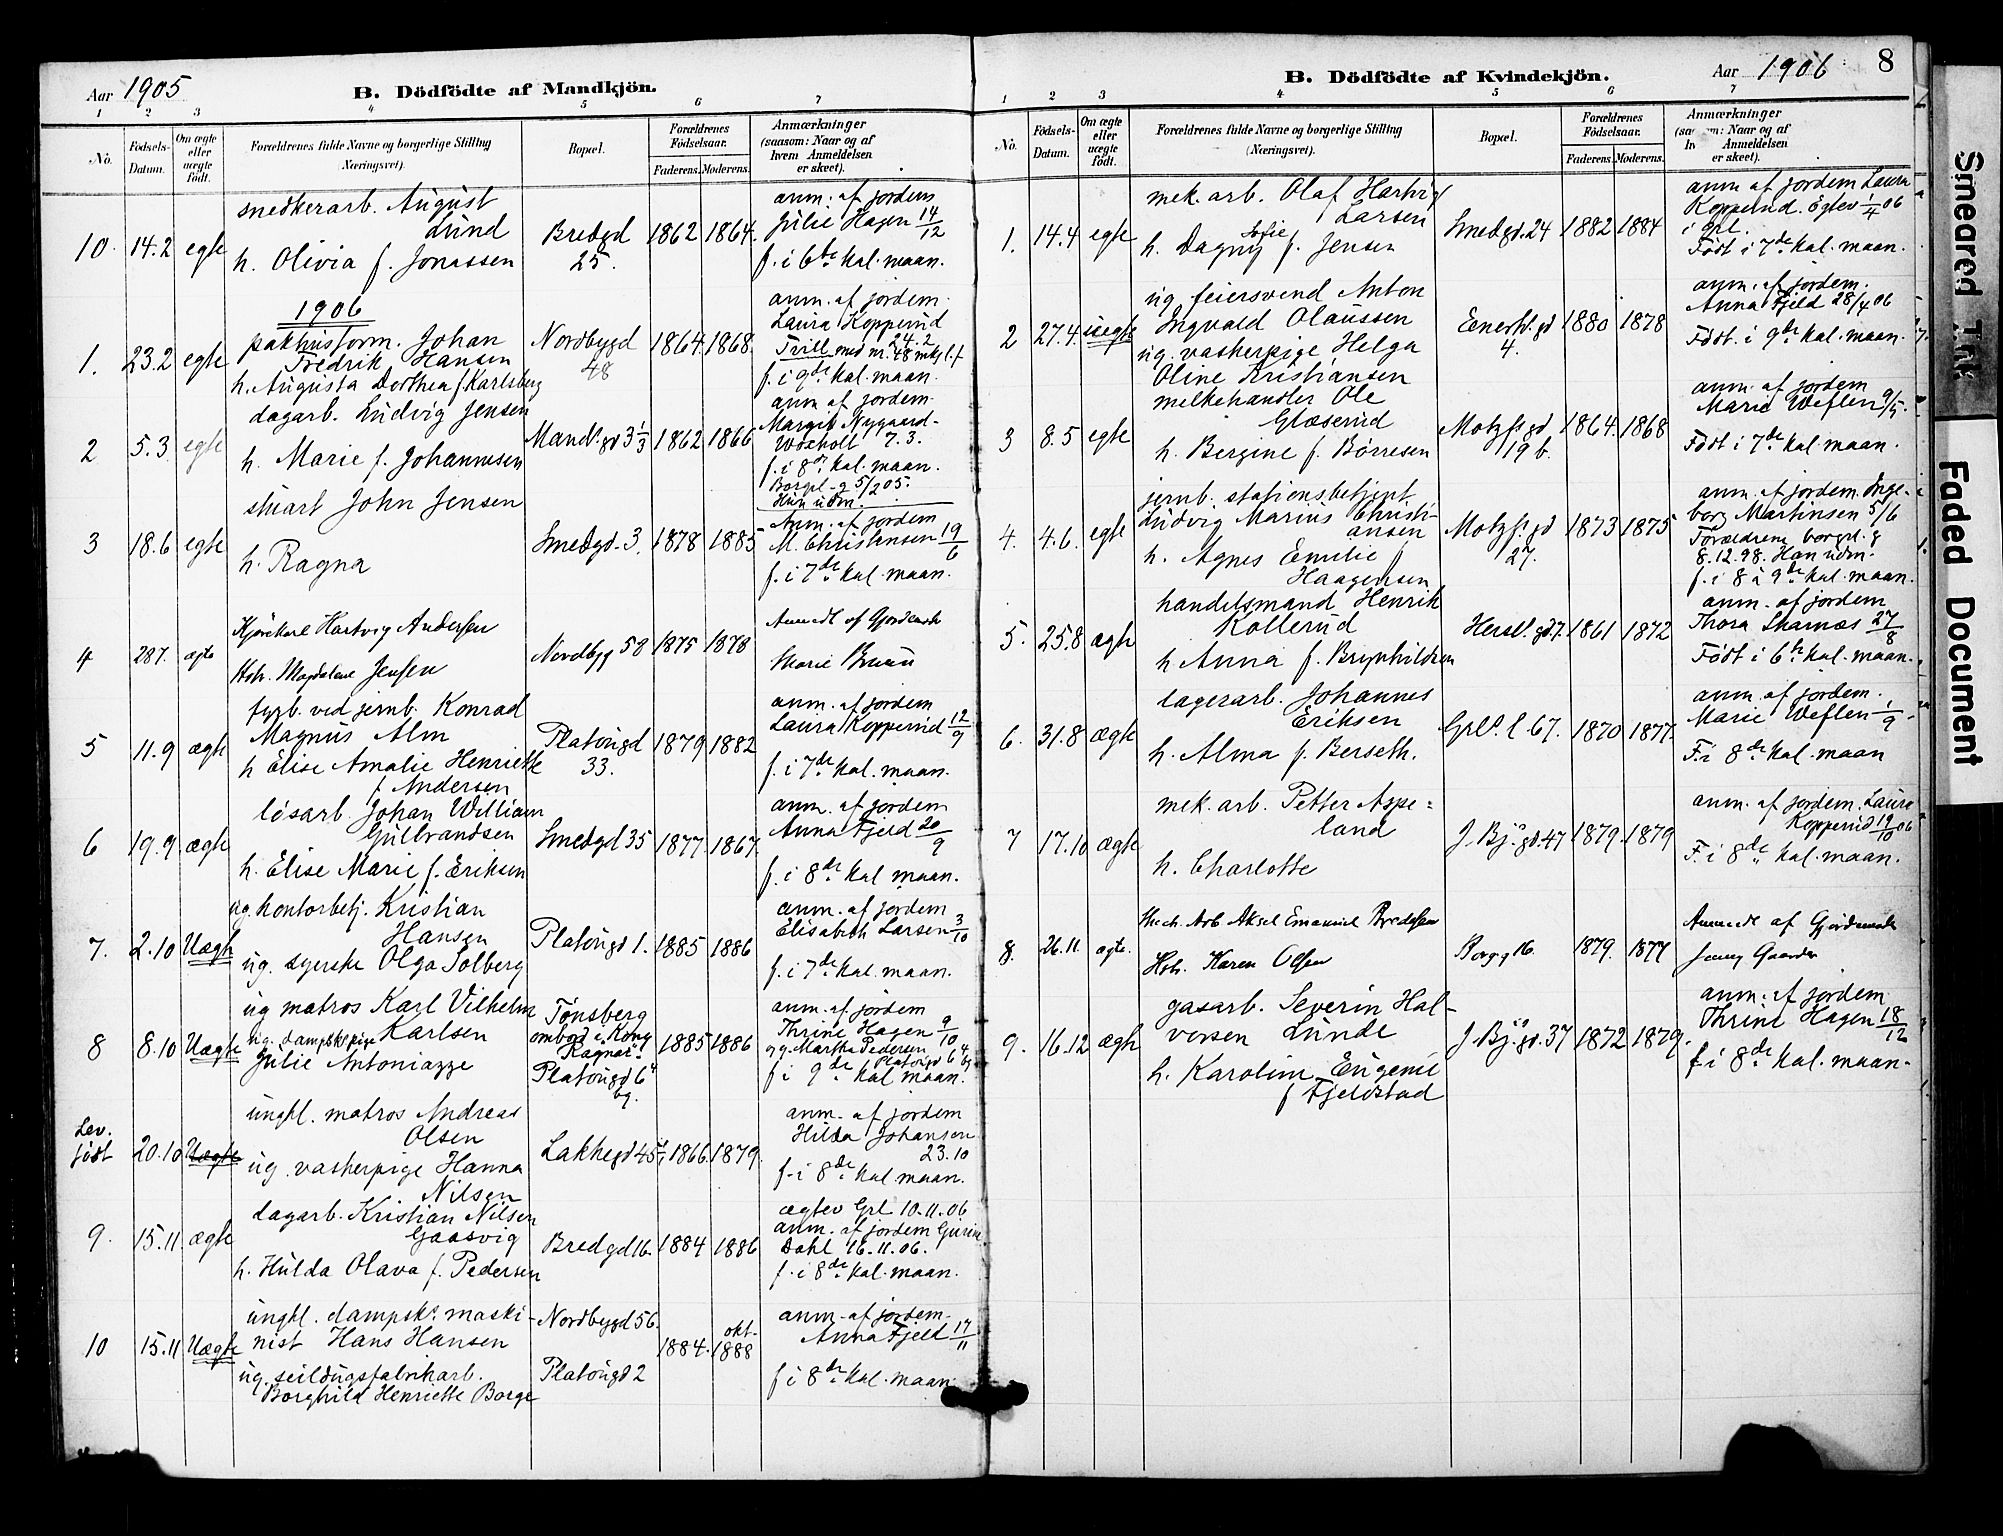 Aar 1905
B. Dödfödte af Mandkjön.
1 2 3 4 5 6 7
No.
Födsels-Datum.
Om ægte eller uægte födt.
Forældrenes fulde Navne og borgerlige Stilling (Næringsvei).
Bopæl.
Forældrenes Födselsaar.
Faderens. Moderens.
Anmærkninger (saasom: Naar og af hvem Anmeldelsen er skeet).
10. 14.2 egte
snedkerarb. August
Lund
h. Olivia f. Jonassen
Bredgd
25.
1862 1864.
anm. af jordem
Julie Hagen 14/12
f. i 6te kal. maan.
1906
1. 23.2 egte
pakhusform. Johan
Fredrik Hansen
h. Augusta Dorthea f. Karlsberg
Nordbygd
48
1864. 1868.
anm. af jordem.
Laura Kopperud
24.2
Tvill med nr. 48 mkj l.f
f. i 9de kal. maan.
2 5.3. egte
dagarb. Ludvig Jensen
h. Marie f. Johannesen
Mandl.gd 3 1/3
1862 1866
anm af jordem.
Margit Nygaard-
7.3.
f. i 8de kal. maan.
Borgvl. g 5/2 05.
Hun udm.
3 18.6 egte
stuart John Jensen
h. Ragna
Smedgd. 3.
1878 1885
Anm. af jordem
M. Christensen 19/6
f. i 7de kal. maan.
4 28.7. ægte
Kjørekarl Hartvig Andersen
Hstr. Magdalene Jensen
Nordbyg 58
1875 1878
Anmeldt af Gjordemoder
Marie Bruun
5 11.9 ægte
fyrb. ved jernb. Konrad
Magnus Alm
h Elise Amalie Henriette
f Andersen
Platougd
33.
1879 1882
anm. af jordem
Laura Kopperud 12/9
f. i 7de kal. maan.
6 19.9 ægte
løsarb. Johan William
Gulbrandsen
h. Elise Marie f. Eriksen
Smedgd 35
1877. 1867.
anm. af jordem
Anna Fjeld 20/9
f. i 8de kal maan.
7. 2.10 Uægte
ug. kontorbetj. Kristian
Hansen
ug. syerske Olga Solberg
Platougd 1.
1885 1886
anm. af jordem
Elisabeth Larsen 3/10
f. i 7de kal. maan.
8 8.10 Uægte
ug matros Karl Vilhelm
Karlsen
ug. dampskspige
Julie Antoniazze
Tønsberg
ombord i Kong
Ragnar.
Platougd 6
bg.
1885 1886
anm. af jordem
Thrine Hagen 9/10
og Martha Pedersen
Platougd 6 4 bg
f i 9de kal maan.
Lev.
født
20.10 Uægte
ungkl. matros Andreas
Olsen
ug. vaskerpige Hanna
Nilsen
Lakkegd 45
1866. 1879
anm. af jordem
Hilda Johansen
23.10
f. i 8de kal. maan.
9. 15.11 ægte
dagarb. Kristian Nilsen
Gaasvig
h. Hulda Olava f. Pedersen
Bredgd 16.
1884 1886
ægtev Grl 10.11.06
anm. af jordem Gurine
Dahl 16.11.06.
f. i 8de kal. maan.
10 15.11 Uægte
ungkl. dampsks maski-
nist Hans Hansen
ug. seildugsfabrikarb.
Borghild Henriette Borge
Nordbygd 56.
Platougd 2
1884. okt. 1888
anm. af jordem.
Anna Fjeld 17/11
f i 8de kal. maan.
B. Dödfödte af Kvindekjön.
Aar 1906
8
1 2 3 4 5 6 7
No.
Födsels-Datum.
Om ægte eller uægte födt.
Forældrenes fulde Navne og borgerlige Stilling (Næringsvei).
Bopæl.
Forældrenes Födselsaar.
Faderens. Moderens.
Anmærkninger
Naar og af
Anmeldelsen
er skeet).
1. 14.4 egte
mek. arb. Olaf Hartvig
Larsen
h. Dagny Sofie f. Jensen
Smedgd. 24
1882 1884
anm af jordem Laura
Kopperud. Egtev 1/4 06
i Grl.
Født i 7de kal. maan.
2 27.4. uegte
ug. feiersvend Anton
Ingvald Olaussen
ug. vaskerpige Helga
Oline Kristiansen
Enerhl.gd
4.
1880 1878
anm. af jordem.
Anna Fjeld 28/4 06
Født. i 9de kal. maan.
3 8.5 egte
melkehandler Ole
Glæserud
h. Bergine f. Børresen
Motzf.gd
19 b.
1864. 1868
anm. af jordem
Marie Weflen 9/5.
Født i 7de kal. maan.
4. 4.6. egte
jernb. stationsbetjent
Ludvig Marius Christi-
ansen
h. Agnes Emilie f
Haagensen
Motzf.gd
27.
1873 1875
anm. af jordem. Inge-
borg Martinsen 5/6
Forældrene borgvl. g
8.12.98. Han udm.
f. i 8 à 9de kal. maan.
5. 25.8 ægte
handelsmand Henrik
Kollerud
h Anna f. Brynhildsen
Hersl.gd 7.
1861 1872
anm. af jordem
Thora Skarnæs 27/8
Født i 6te kal. maan.
6. 31.8 ægte
lagerarb. Johannes
Eriksen
h. Alma f. Berseth.
Grl. l 67.
1870 1877.
anm. af jordem.
Marie Weflen 1/9.
F. i 8de kal. maan
7 17.10 ægte
mek. arb. Petter Aspe=
land
h. Charlotte
J. Bj. gd. 47
1879. 1879
anm. af jordem. Laura
Kopperud 19/10 06
F. i 8de kal. maan.
8. 26.11. ægte.
Mech. Arb Aksel Emanuel
Hstr. Karen Olsen
Borgg 16
1879. 1877
Anmeldt af Gjordemoder
Jenny Gaarder
9. 16.12 ægte
gasarb. Severin Hal-
vorsen Lunde
h. Karoline Eugenie
f Fjeldstad
J. Bj. gd. 37
1872 1879.
anm. af jordem
Thrine Hagen 18/12
f. i 8de kal. maan.
Smeared Ink
Faded Document